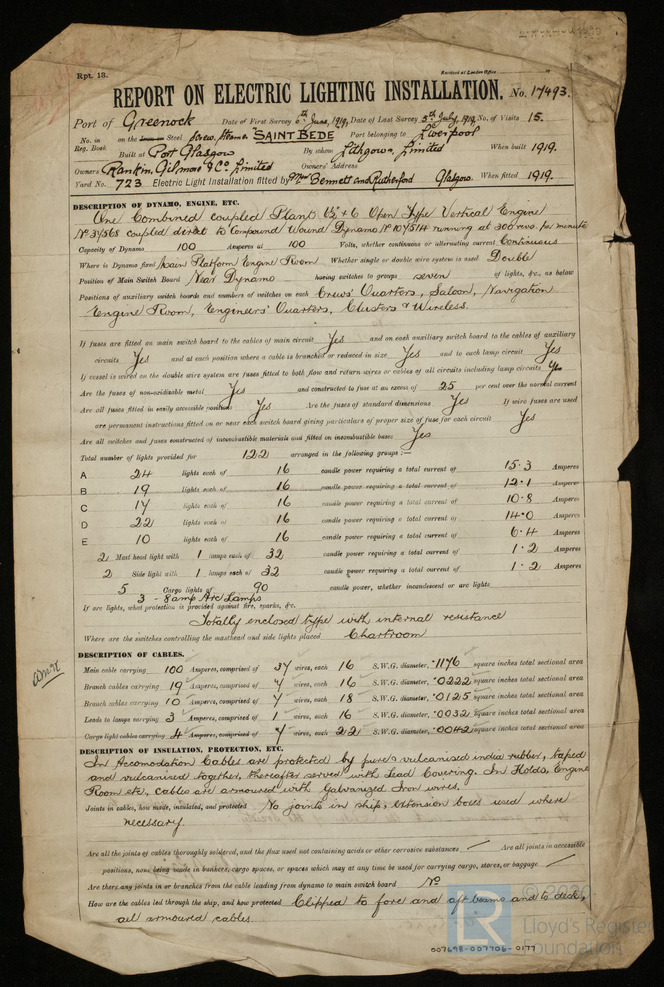 Rpt. 13.
Received at London Office
REPORT ON ELECTRIC LIGHTING INSTALLATION. No. 17493.
Port of Greenock Date of First Survey 6th June, 1919, Date of Last Survey 5th July, 1919 No. of Visits 15.
No. in Reg. Book on the Steel Screw Steamer "SAINT BEDE" Port belonging to Liverpool
Built at Port Glasgow By whom Lithgows, Limited When built 1919.
Owners Rankin, Gilmour & Co Limited Owners' Address
Yard No. 723 Electric Light Installation fitted by Bennett and Rutherford Glasgow. When fitted 1919.
DESCRIPTION OF DYNAMO, ENGINE, ETC.
One Combined coupled Plant + 6 Open Type Vertical Engine
No 34568 coupled direct to Compound Wound Dynamo No 104514 running at 300 revs per minute
Capacity of Dynamo 100 Amperes at 100 Volts, whether continuous or alternating current Continuous
Where is Dynamo fixed Main Platform Engine Room Whether single or double wire system is used Double
Position of Main Switch Board Near Dynamo having switches to groups seven of lights, &c., as below
Positions of auxiliary switch boards and numbers of switches on each Crews' Quarters, Saloon, Navigation
Engine Room, Engineers' Quarters, Clusters & Wireless.
If fuses are fitted on main switch board to the cables of main circuit Yes and on each auxiliary switch board to the cables of auxiliary
circuits Yes and at each position where a cable is branched or reduced in size Yes and to each lamp circuit Yes
If vessel is wired on the double wire system are fuses fitted to both flow and return wires or cables of all circuits including lamp circuits Yes
Are the fuses of non-oxidizable metal Yes and constructed to fuse at an excess of 25 per cent over the normal current
Are all fuses fitted in easily accessible positions Yes Are the fuses of standard dimensions Yes If wire fuses are used
are permanent instructions fitted on or near each switch board giving particulars of proper size of fuse for each circuit Yes
Are all switches and fuses constructed of incombustible materials and fitted on incombustible bases Yes
Total number of lights provided for 122 arranged in the following groups :—
A 24 lights each of 16 candle power requiring a total current of 15.3 Amperes
B 19 lights each of 16 candle power requiring a total current of 12.1 Amperes
C 17 lights each of 16 candle power requiring a total current of 10.8 Amperes
D 22 lights each of 16 candle power requiring a total current of 14.0 Amperes
E 10 lights each of 16 candle power requiring a total current of 6.4 Amperes
2 Mast head light with 1 lamps each of 32 candle power requiring a total current of 1.2 Amperes
2 Side light with 1 lamps each of 32 candle power requiring a total current of 1.2 Amperes
5 Cargo lights of 90 candle power, whether incandescent or arc lights
3 - 8 amp Arc Lamps
If arc lights, what protection is provided against fire, sparks, &c.
Totally enclosed type with internal resistance
Where are the switches controlling the masthead and side lights placed Chartroom
DESCRIPTION OF CABLES.
Main cable carrying 100 Amperes, comprised of 37 wires, each 16 S.W.G. diameter, .1176 square inches total sectional area
Branch cables carrying 19 Amperes, comprised of 7 wires, each 16 S.W.G. diameter, .0222 square inches total sectional area
Branch cables carrying 10 Amperes, comprised of 7 wires, each 18 S.W.G. diameter, .0125 square inches total sectional area
Leads to lamps carrying 3 Amperes, comprised of 1 wires, each 16 S.W.G. diameter, .0032 square inches total sectional area
Cargo light cables carrying 4 Amperes, comprised of 7 wires, each 22 S.W.G. diameter, .0042 square inches total sectional area
DESCRIPTION OF INSULATION, PROTECTION, ETC.
In Accomodation Cables are protected by pure & vulcanised india rubber, taped
and vulcanised together, thereafter served with Lead Covering. In Holds, Engine
Room etc, cables are armoured with Galvanized Iron wires.
Joints in cables, how made, insulated, and protected No joints in ship, extension boxes used where
necessary.
Are all the joints of cables thoroughly soldered, and the flux used not containing acids or other corrosive substances — Are all joints in accessible
positions, none being made in bunkers, cargo spaces, or spaces which may at any time be used for carrying cargo, stores, or baggage —
Are there any joints in or branches from the cable leading from dynamo to main switch board No
How are the cables led through the ship, and how protected Clipped to fore and aft beams and to deck,
all armoured cables.
© 2020
Lloyd's Register
Foundation
007698-007706-0177